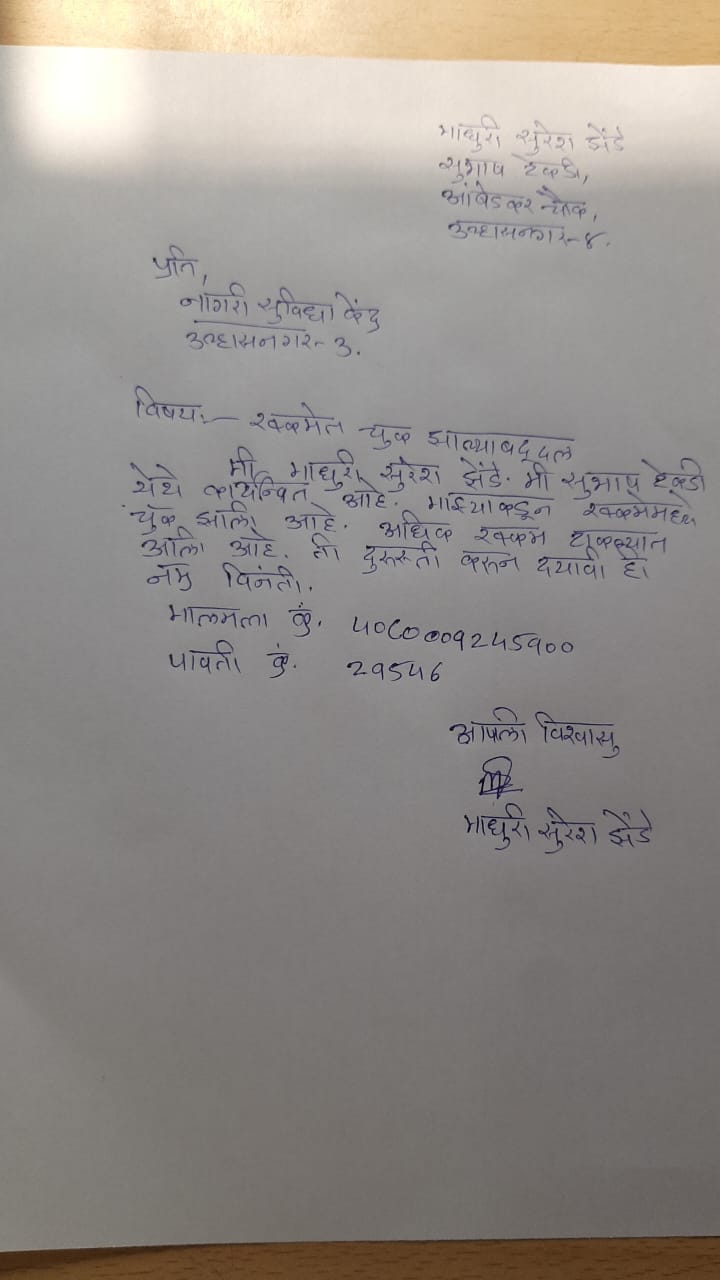 माधुरी सुरेश झेंडे
सुभाष टेकडी,
आंबेडकर चौक,
उल्हासनगर-४.
प्रति,
नागरी सुविधा केंद्र
उल्हासनगर- ३.
विषय:- रक्कमेत चुक झाल्याबद्दल
मी, माधुरी सुरेश झेंडे. मी सुभाष टेकडी
येथे कार्यन्वित आहे. माझ्याकडून रक्कमेमध्ये
चुक झाली आहे. अधिक रक्कम
आली आहे. ती दुरूस्ती करून दयावी ही
नम्र विनंती.
मालमत्ता क्रं.
पावती क्रं. 29546
आपली विश्वासु
माधुरी सुरेश झेंडे